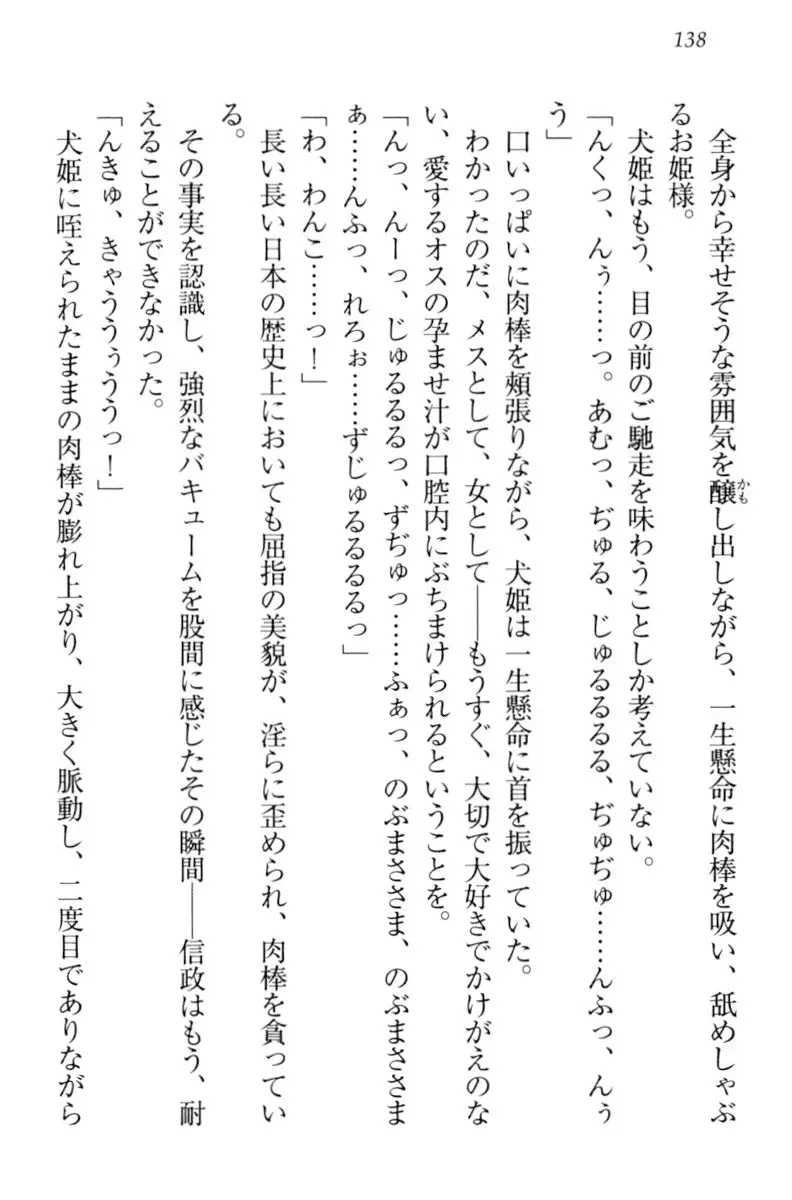 138
全身から幸せそうな雰囲気を醸し出しながら、一生懸命に肉棒を吸い、舐めしゃぶ
かも
るお姫様。
犬姫はもう、目の前のご馳走を味わうことしか考えていない。
「んくっ、んぅ……っ。あむっ、ぢゅる、じゅるるるる、ぢゅぢゅ……んふっ、んぅ
う」
口いっぱいに肉棒を頬張りながら、犬姫は一生懸命に首を振っていた。
わかったのだ、メスとして、女として――もうすぐ、大切で大好きでかけがえのな
い、愛するオスの孕ませ汁が口腔内にぶちまけられるということを。
「んっ、んーっ、じゅるるるっ、ずぢゅっ……ふぁっ、のぶまささま、のぶまささま
ぁ……んふっ、れろぉ……ずじゅるるるるっ」
「わ、わんこ……っ！」
長い長い日本の歴史上においても屈指の美貌が、淫らに歪められ、肉棒を貪ってい
る。
その事実を認識し、強烈なバキュームを股間に感じたその瞬間――信政はもう、耐
えることができなかった。
「んきゅ、きゃううぅううっ！」
犬姫に咥えられたままの肉棒が膨れ上がり、大きく脈動し、二度目でありながら